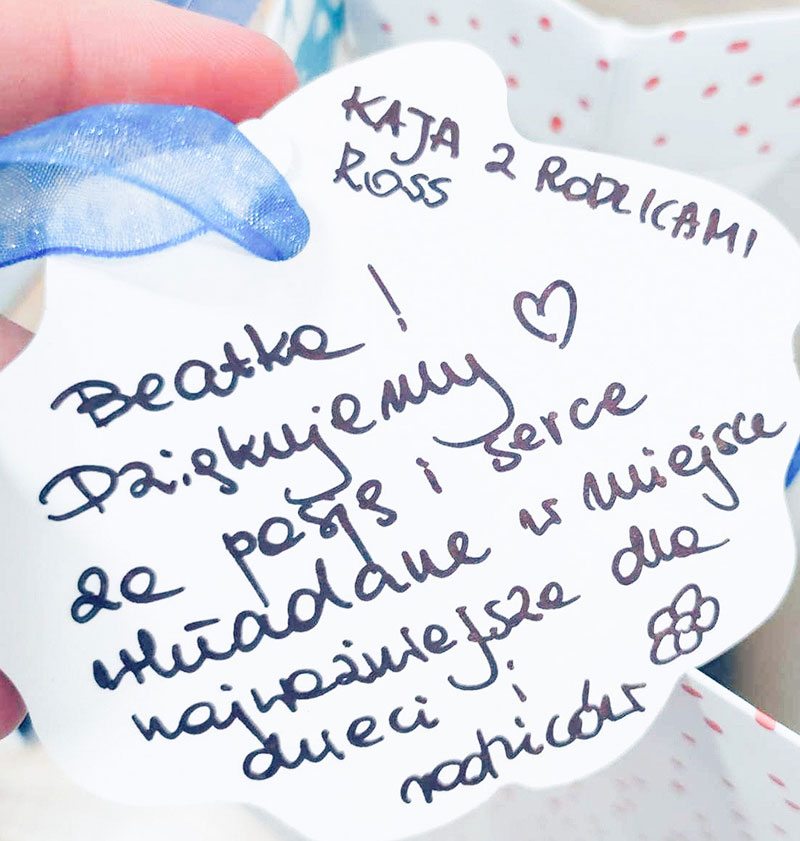 KAJA Z RODZICAMI
ROSS
Beatko!
Dziękujemy
za pasję i serce
wkładane w miejsce
najważniejsze dla
dzieci i
rodziców